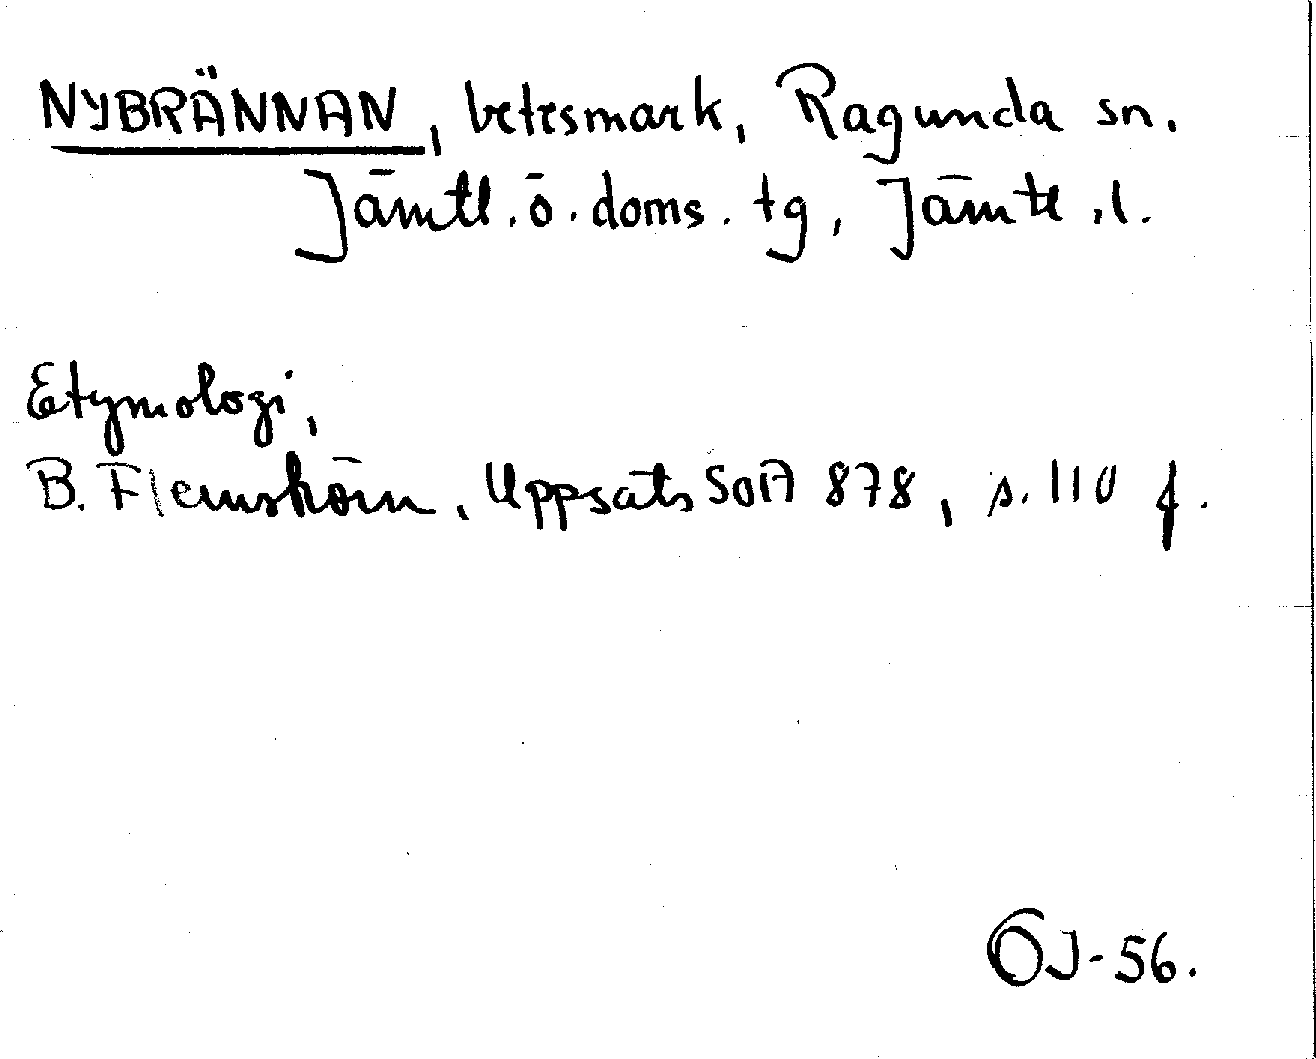 NYBRÄNNAN, betesmark, Ragunda sn.
Jämtl. ö. doms. tg, Jämtl. l.
Etymologi,
B. Flemström, Uppsats SOA 878, s. 110 f.
ÖJ-56.